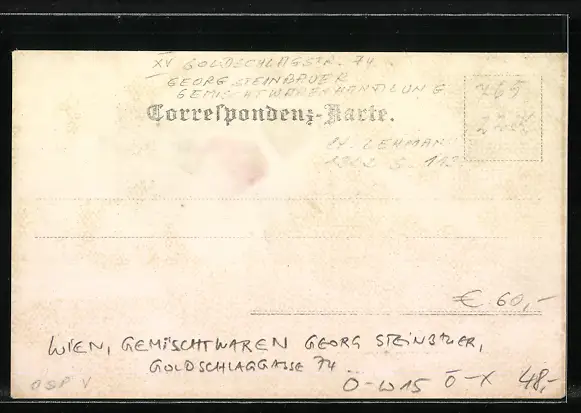 XV GOLDSCHLAGSTR. 74
GEORG STEINBAUER
GEMISCHTWARENHANDLUNG
Correspondenz-Karte.
LT. LEHMANN
S.
€ 60,-
WIEN, GEMISCHTWAREN GEORG STEINBAUER,
GOLDSCHLAGGASSE 74
OSP V
Ö-W15 Ö-X 48,-